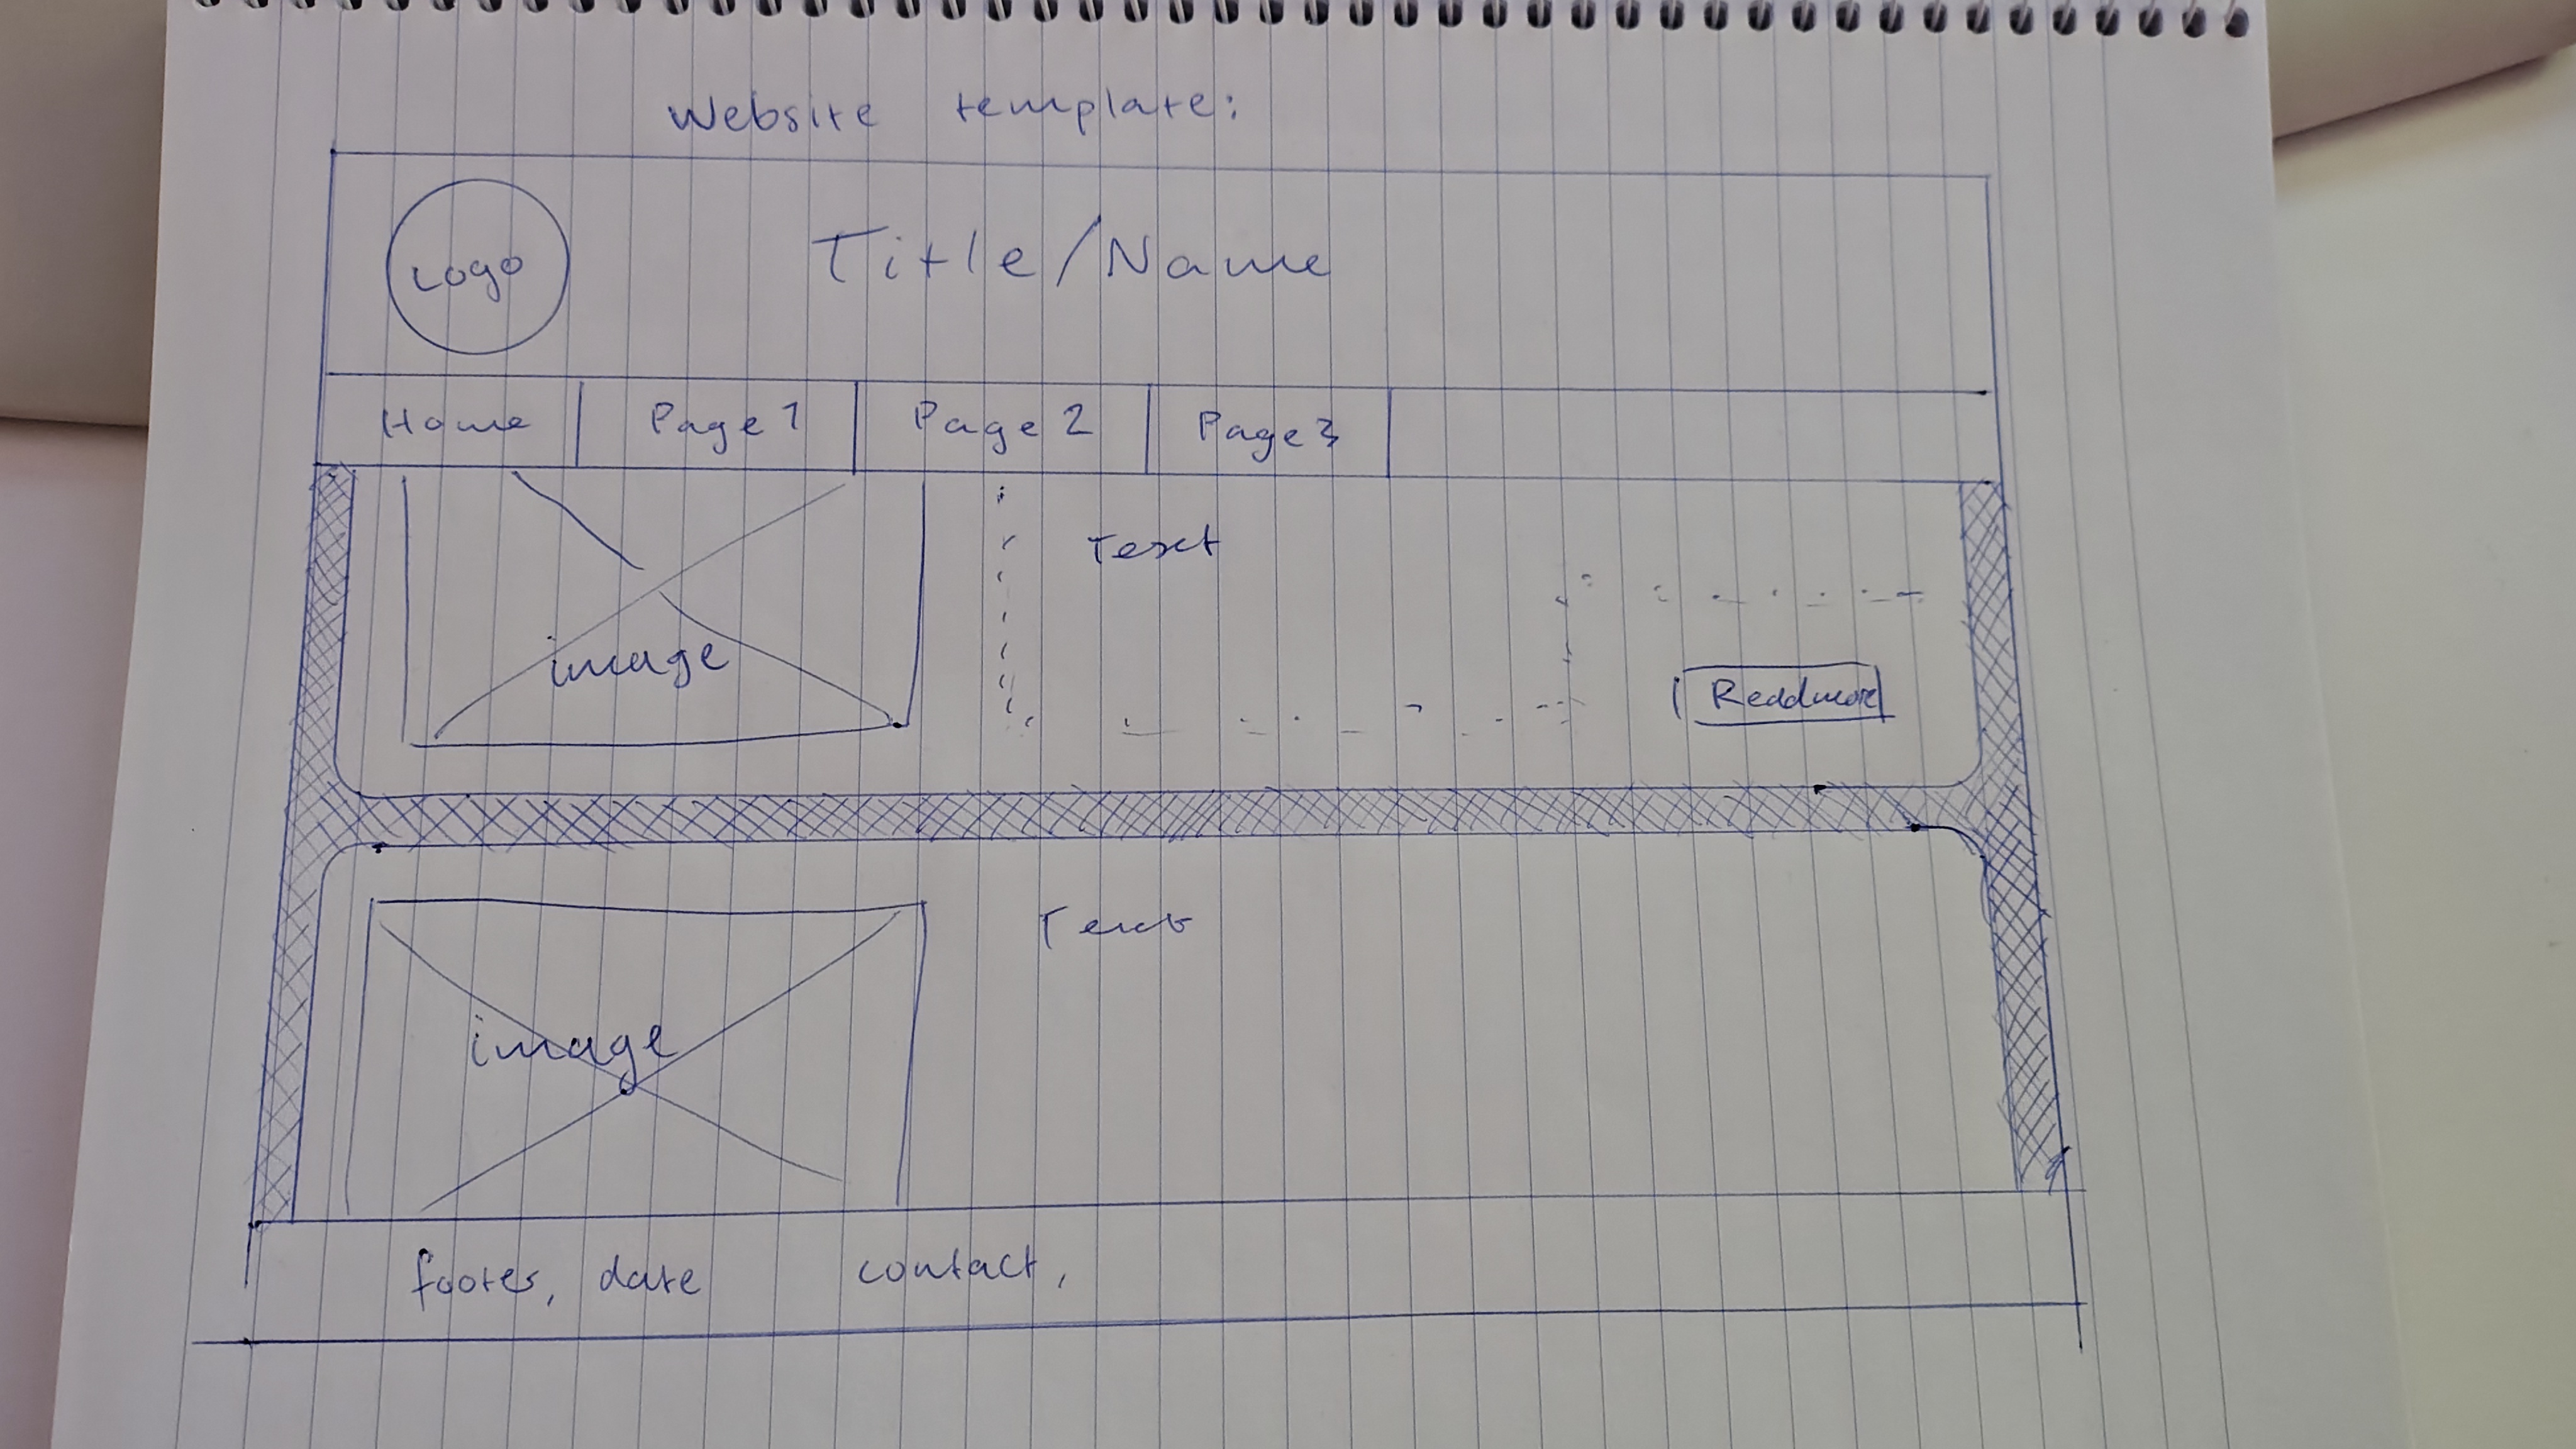 Website template:
Logo
Title/Name
Home Page 1 Page 2 Page 3
image
Text
Readmore
image
Text
footer, date contact,